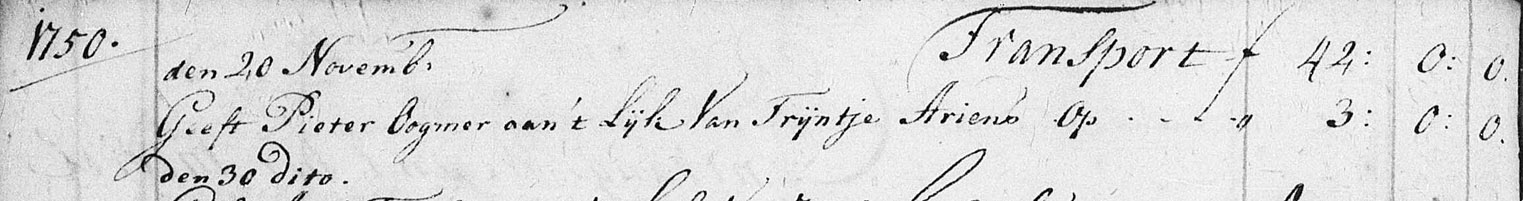 1750.
den 20 Novemb. Transport f 42: 0: 0.
Geeft Pieter Oogmer aan 't Lijk Van Trijntje Ariens Op - - - - " 3: 0: 0.
den 30 dito.